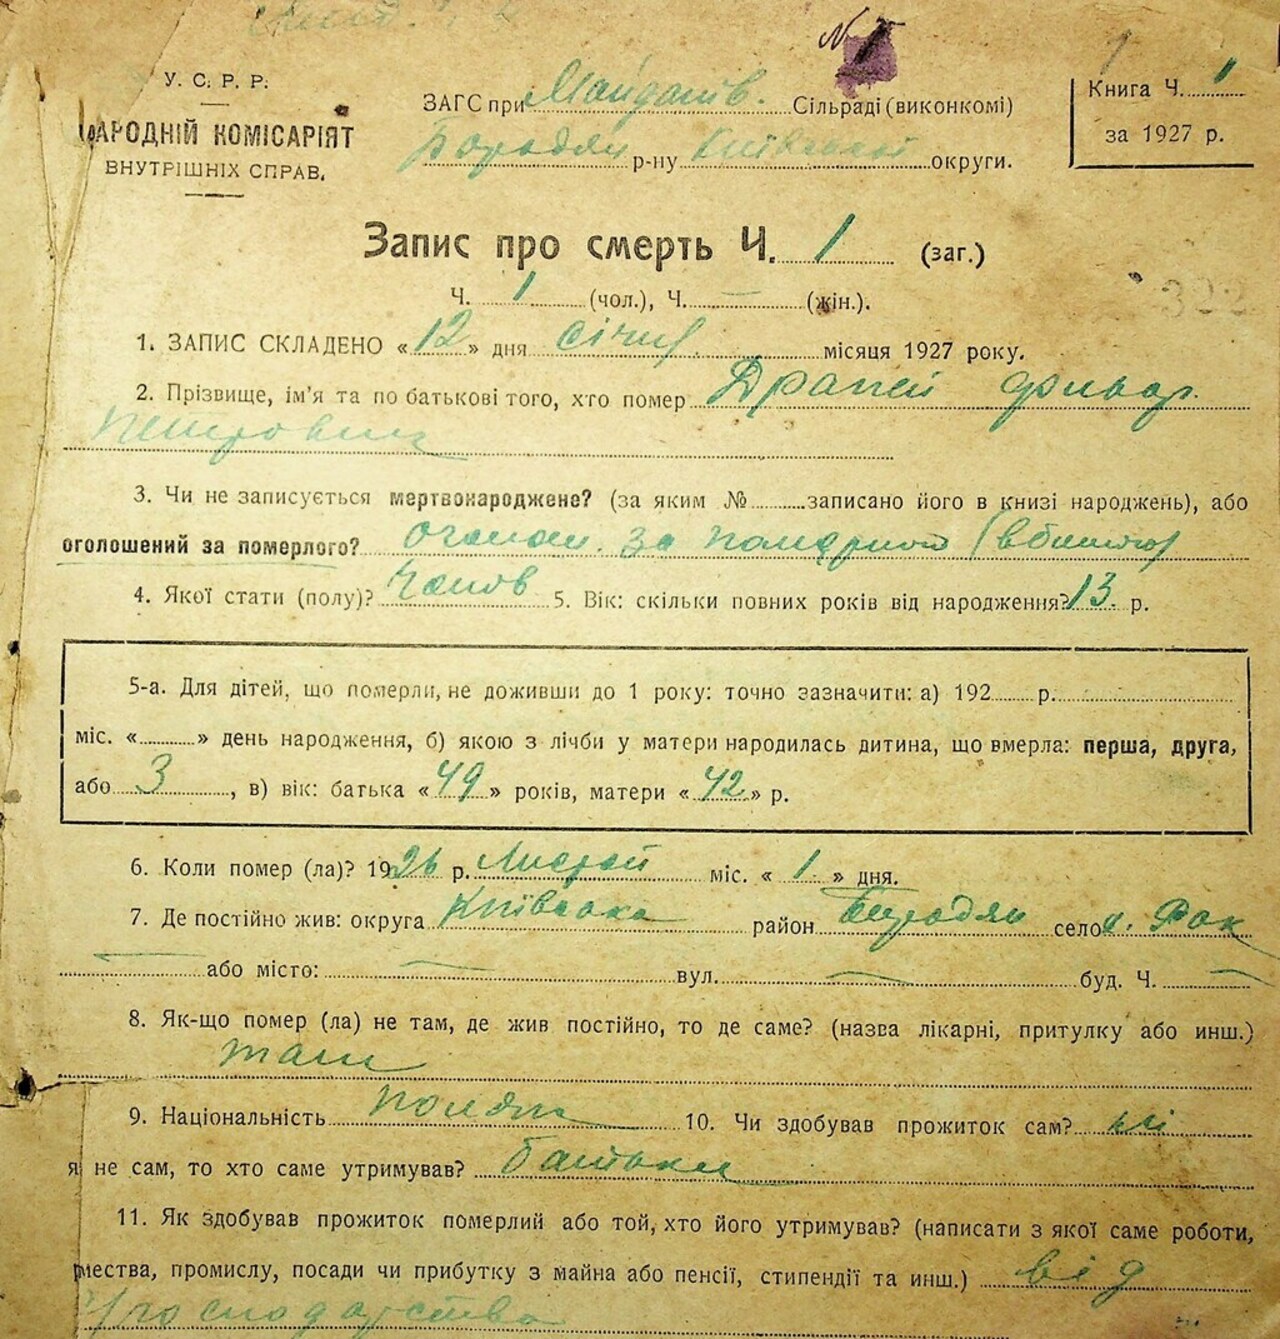 № 1
У. С. Р. Р.
НАРОДНІЙ КОМІСАРІЯТ
ВНУТРІШНІХ СПРАВ.
ЗАГС при Сільраді (виконкомі)
Бородян р-ну Київської округи.
Книга Ч. 1
за 1927 р.
Запис про смерть Ч. 1 (заг.)
Ч. 1 (чол.), Ч. — (жін.).
1. ЗАПИС СКЛАДЕНО « 12 » дня січня місяця 1927 року.
2. Прізвище, ім'я та по батькові того, хто помер Драпей
Петрович
3. Чи не записується мертвонароджене? (за яким № записано його в книзі народжень), або
оголошений за померлого? за
4. Якої стати (полу)? Чолов 5. Вік: скільки повних років від народження? 13. р.
5-а. Для дітей, що померли, не доживши до 1 року: точно зазначити: а) 192 р.
міс. « » день народження, б) якою з лічби у матери народилась дитина, що вмерла: перша, друга,
або 3 , в) вік: батька « 49 » років, матери « 42 » р.
6. Коли помер (ла)? 1926 р. міс. « 1 » дня.
7. Де постійно жив: округа Київська район Бородян село
— або місто: — вул. — буд. Ч. —
8. Як-що помер (ла) не там, де жив постійно, то де саме? (назва лікарні, притулку або инш.)
там
9. Національність поляк 10. Чи здобував прожиток сам? ні
я не сам, то хто саме утримував? батьки
11. Як здобував прожиток померлий або той, хто його утримував? (написати з якої саме роботи,
мества, промислу, посади чи прибутку з майна або пенсії, стипендії та инш.) від
господарства